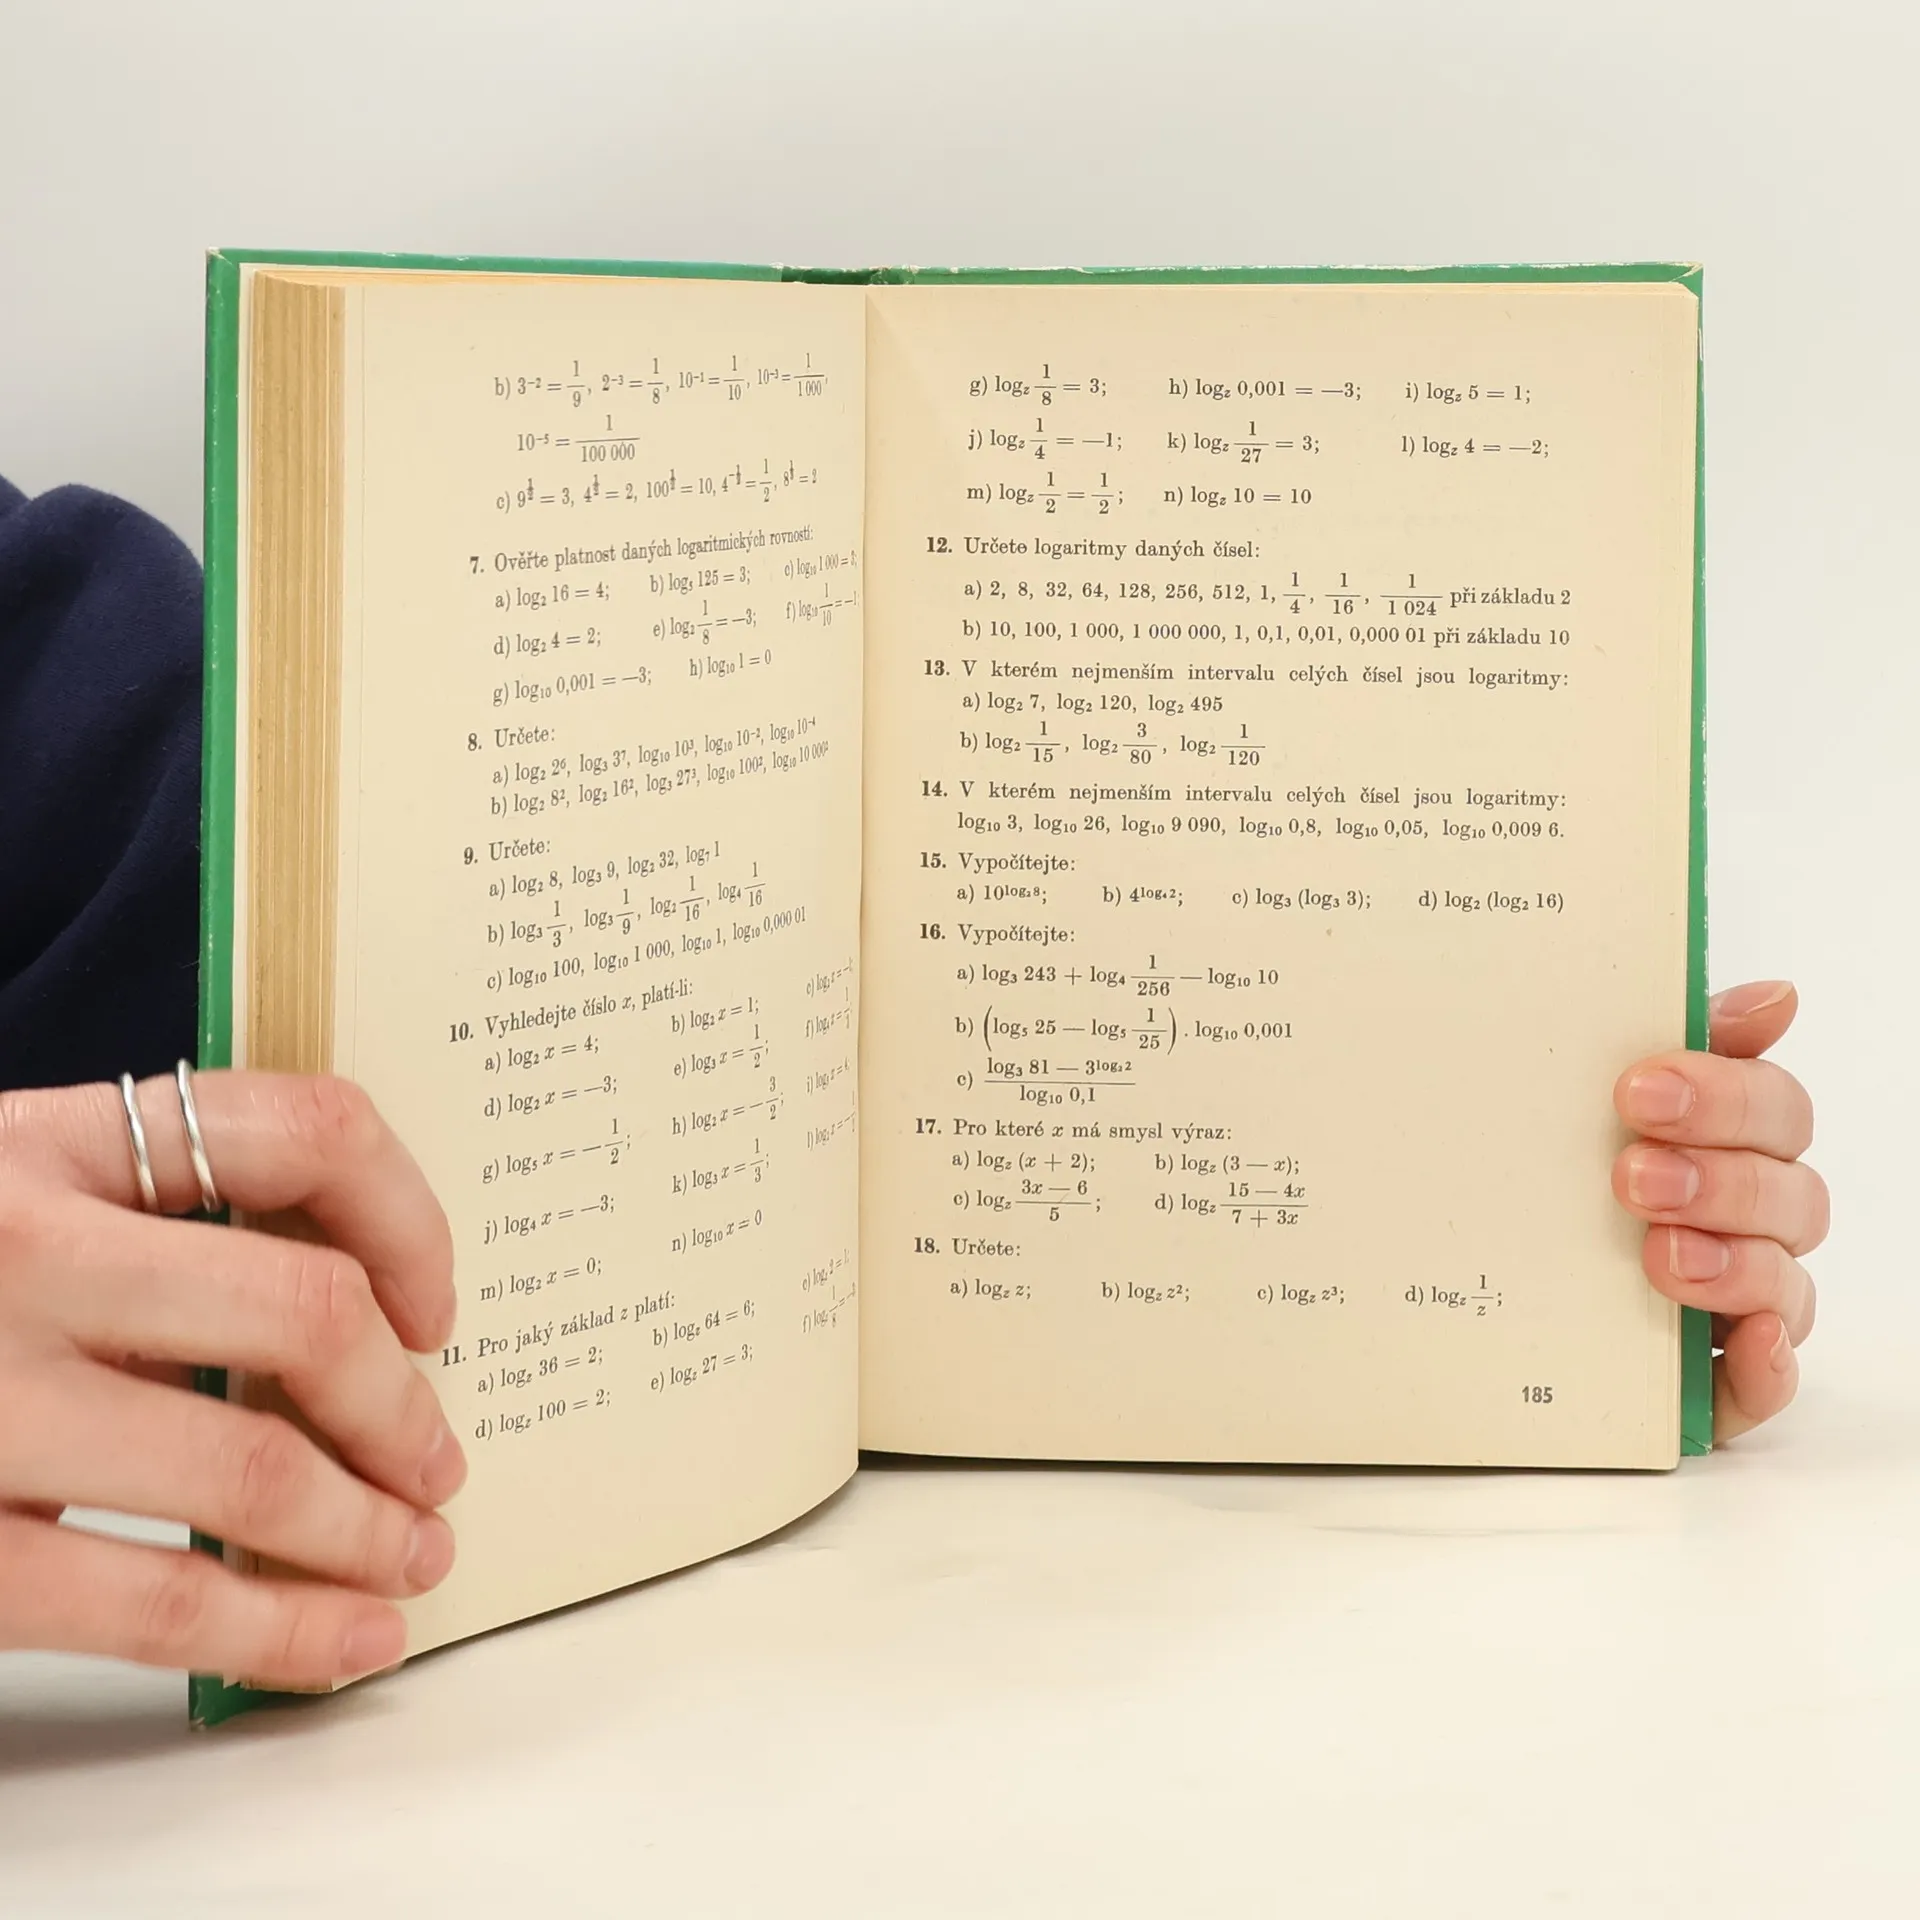 b) 3⁻² = 1/9, 2⁻³ = 1/8, 10⁻¹ = 1/10, 10⁻³ = 1/1 000,
10⁻⁵ = 1/100 000
c) 9^(1/2) = 3, 4^(1/2) = 2, 100^(1/2) = 10, 4^(−1/2) = 1/2, 8^(1/3) = 2
7. Ověřte platnost daných logaritmických rovností:
a) log₂ 16 = 4; b) log₅ 125 = 3; c) log₁₀ 1 000 = 3;
d) log₂ 4 = 2; e) log₂ 1/8 = —3; f) log₁₀ 1/10 = —1
g) log₁₀ 0,001 = —3; h) log₁₀ 1 = 0
8. Určete:
a) log₂ 2⁶, log₃ 3⁷, log₁₀ 10³, log₁₀ 10⁻², log₁₀ 10⁻⁴
b) log₂ 8², log₂ 16², log₃ 27³, log₁₀ 100², log₁₀ 10 000²
9. Určete:
a) log₂ 8, log₃ 9, log₂ 32, log₇ 1
b) log₃ 1/3, log₃ 1/9, log₂ 1/16, log₄ 1/16
c) log₁₀ 100, log₁₀ 1 000, log₁₀ 1, log₁₀ 0,000 01
10. Vyhledejte číslo x, platí-li:
a) log₂ x = 4; b) log₂ x = 1; c)
d) log₂ x = —3; e) log₃ x = 1/2; f)
g) log₅ x = — 1/2; h) log₂ x = — 3/2; i)
j) log₄ x = —3; k) log₃ x = 1/3; l)
m) log₂ x = 0; n) log₁₀ x = 0
11. Pro jaký základ z platí:
a) log_z 36 = 2; b) log_z 64 = 6; c) log_z 2 = 1;
d) log_z 100 = 2; e) log_z 27 = 3; f) log_z 1/8 = —3
g) log_z 1/8 = 3; h) log_z 0,001 = —3; i) log_z 5 = 1;
j) log_z 1/4 = —1; k) log_z 1/27 = 3; l) log_z 4 = —2;
m) log_z 1/2 = 1/2; n) log_z 10 = 10
12. Určete logaritmy daných čísel:
a) 2, 8, 32, 64, 128, 256, 512, 1, 1/4, 1/16, 1/1 024 při základu 2
b) 10, 100, 1 000, 1 000 000, 1, 0,1, 0,01, 0,000 01 při základu 10
13. V kterém nejmenším intervalu celých čísel jsou logaritmy:
a) log₂ 7, log₂ 120, log₂ 495
b) log₂ 1/15, log₂ 3/80, log₂ 1/120
14. V kterém nejmenším intervalu celých čísel jsou logaritmy:
log₁₀ 3, log₁₀ 26, log₁₀ 9 090, log₁₀ 0,8, log₁₀ 0,05, log₁₀ 0,009 6.
15. Vypočítejte:
a) 10^(log₂ 8); b) 4^(log₄ 2); c) log₃ (log₃ 3); d) log₂ (log₂ 16)
16. Vypočítejte:
a) log₃ 243 + log₄ 1/256 — log₁₀ 10
b) (log₅ 25 — log₅ 1/25) . log₁₀ 0,001
c) (log₃ 81 — 3^(log₃ 2))/(log₁₀ 0,1)
17. Pro které x má smysl výraz:
a) log_z (x + 2); b) log_z (3 — x);
c) log_z (3x — 6)/5; d) log_z (15 — 4x)/(7 + 3x)
18. Určete:
a) log_z z; b) log_z z²; c) log_z z³; d) log_z 1/z;
185